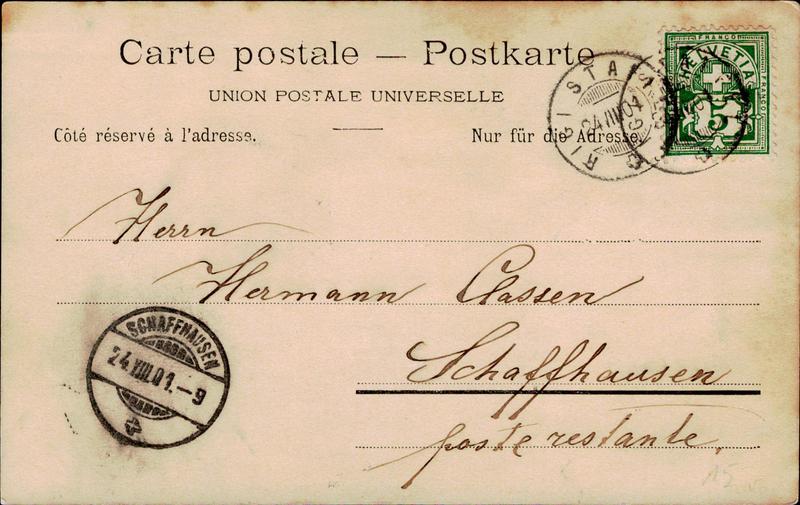 Carte postale — Postkarte
UNION POSTALE UNIVERSELLE
Côté réservé à l'adresse.
Nur für die Adresse.
FRANCO
HELVETIA
5
RIGI STAFFEL
Herrn
Hermann Classen
Schaffhausen
poste restante.
SCHAFFHAUSEN
24.VIII.01.–9
15